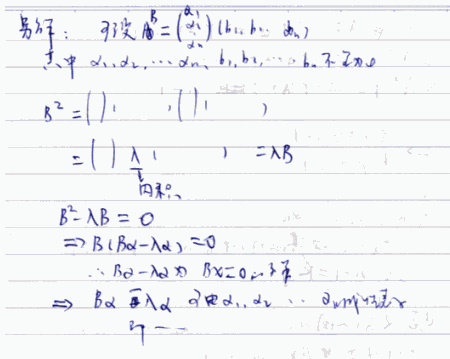 另解: 可设 B = (α₁ α₂ … αₙ) (b₁, b₂ … bₙ)
其中 α₁, α₂, … αₙ, b₁, b₂, … bₙ 不全为0
B² = ( ) ( , ) ( ) ( , )
= ( ) λ ( ) = λB
内积
B² - λB = 0
⇒ B(Bα - λα) = 0
∴ Bα - λα 为 BX = 0 解
⇒ Bα λα α₁, α₂ …
即 ……